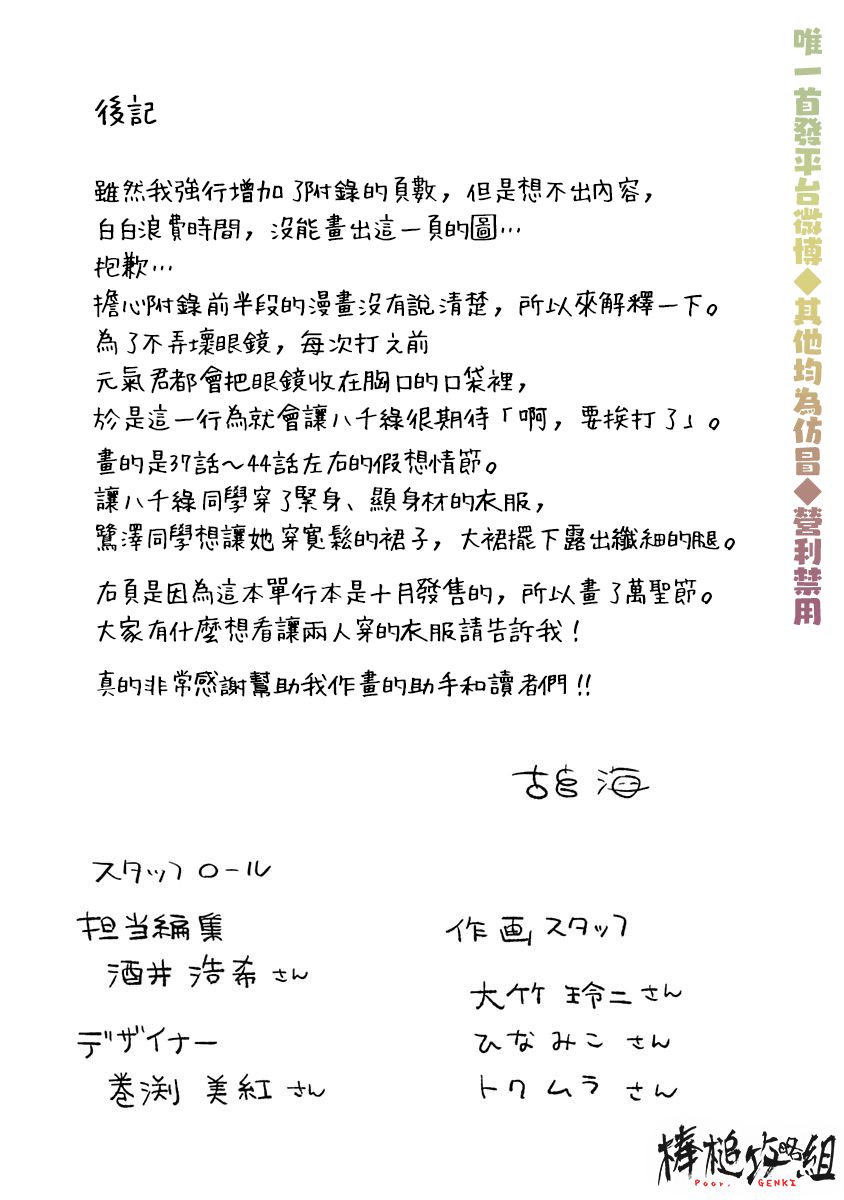 後記
雖然我強行增加了附錄的頁數，但是想不出內容，
白白浪費時間，沒能畫出這一頁的圖…
抱歉…
擔心附錄前半段的漫畫沒有說清楚，所以來解釋一下。
為了不弄壞眼鏡，每次打之前
元氣君都會把眼鏡收在胸口的口袋裡，
於是這一行為就會讓八千綠很期待「啊，要挨打了」。
畫的是37話～44話左右的假想情節。
讓八千綠同學穿了緊身、顯身材的衣服，
鷺澤同學想讓她穿寬鬆的裙子，大裙擺下露出纖細的腿。
右頁是因為這本單行本是十月發售的，所以畫了萬聖節。
大家有什麼想看讓兩人穿的衣服請告訴我！
真的非常感謝幫助我作畫的助手和讀者們！！
古宮海
スタッフロール
担当編集
酒井 浩希さん
デザイナー
巻渕 美紅さん
作画スタッフ
大竹 玲二さん
ひなみこさん
トクムラさん
唯一首發平台微博◆其他均為仿冒◆營利禁用
棒槌攻略組
Poor. GENKI